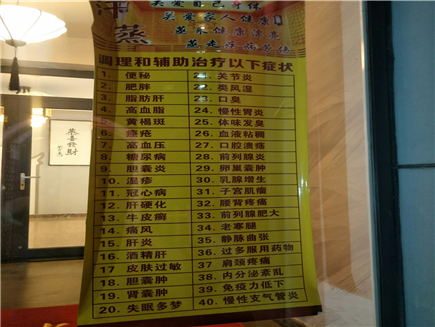 关爱自己身体
关爱家人健康
汗
蒸
蒸来健康漂亮
蒸走疾病
调理和辅助治疗以下症状
1. 便秘 21. 关节炎
2. 肥胖 22. 类风湿
3. 脂肪肝 23. 口臭
4. 高血脂 24. 慢性胃炎
5. 黄褐斑 25. 体味发臭
6. 痤疮 26. 血液粘稠
7. 高血压 27. 口腔溃疡
8. 糖尿病 28. 前列腺炎
9. 胆囊炎 29. 卵巢囊肿
10. 湿疹 30. 乳腺增生
11. 冠心病 31. 子宫肌瘤
12. 肝硬化 32. 腰背疼痛
13. 牛皮癣 33. 前列腺肥大
14. 痛风 34. 老寒腿
15. 肝炎 35. 静脉曲张
16. 酒精肝 36. 过多服用药物
17. 皮肤过敏 37. 肩颈疼痛
18. 胆囊肿 38. 内分泌紊乱
19. 肾囊肿 39. 免疫力低下
20. 失眠多梦 40. 慢性支气管炎
恭喜發財